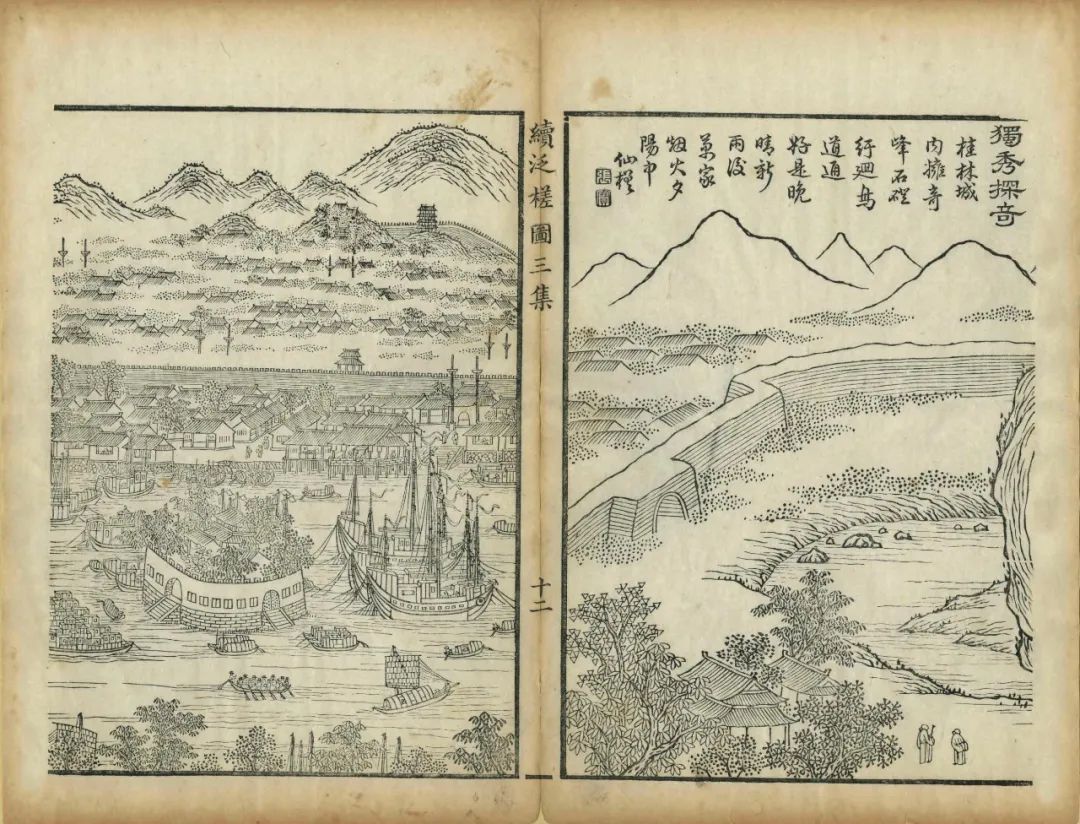 獨秀探奇
桂林城
内擁奇
峰石磴
紆迴鳥
道通
好是晚
晴新
雨後
萬家
烟火夕
陽中
仙槎
張
寶
續泛槎圖三集
十二